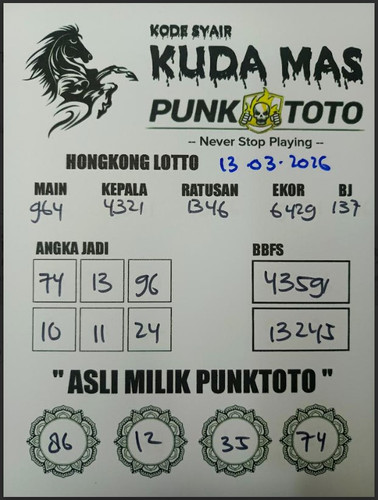 KODE SYAIR
KUDA MAS
PUNK TOTO
-- Never Stop Playing --
HONGKONG LOTTO 13 03-2026
MAIN KEPALA RATUSAN EKOR BJ
964 4321 1346 6429 137
ANGKA JADI BBFS
74 13 96 4359
10 11 24 13245
" ASLI MILIK PUNKTOTO "
86 12 35 74